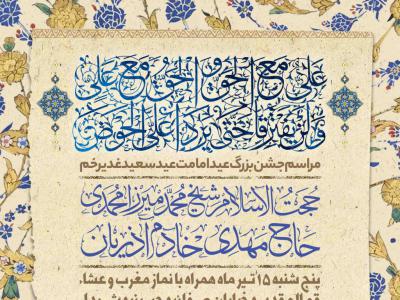 علی مع الحق و الحق مع علی
ولن یفترقا حتی یردا علی الحوض
مراسم جشن بزرگ عید امامت عید سعید غدیر خم
حجت الاسلام شیخ محمد میرزامحمدی
حاج مهدی خادم آذریان
پنج شنبه ۱۵ تیر ماه همراه با نماز مغرب و عشاء